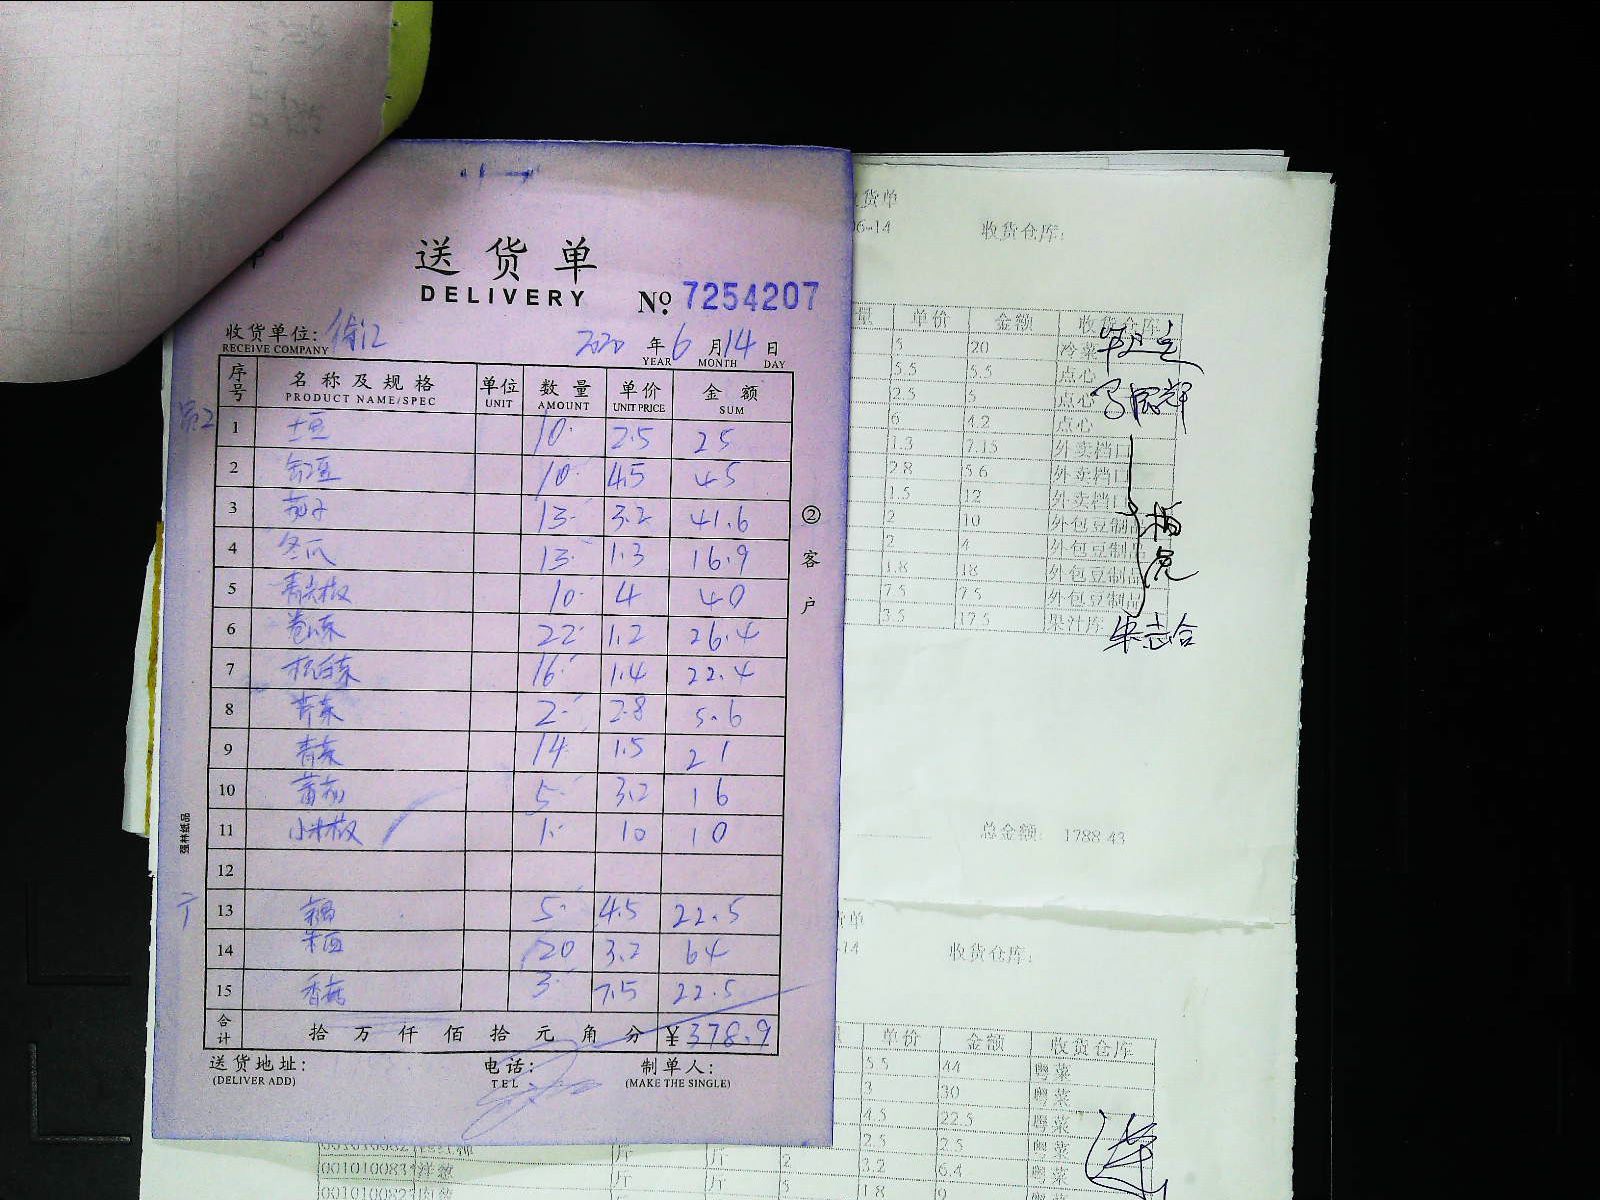 送货单
DELIVERY
No. 7254207
收货单位:
RECEIVE COMPANY
2020 年 6 月 14 日
YEAR MONTH DAY
序号 名称及规格 单位 数量 单价 金额
PRODUCT NAME/SPEC UNIT AMOUNT UNIT PRICE SUM
1 土豆 10 2.5 25
2 豇豆 10 4.5 45
3 茄子 13 3.2 41.6
4 冬瓜 13 1.3 16.9
5 青尖椒 10 4 40
6 卷心菜 22 1.2 26.4
7 杭白菜 16 1.4 22.4
8 芹菜 2 2.8 5.6
9 青菜 14 1.5 21
10 蕃茄 5 3.2 16
11 小米椒 1 10 10
12
13 5 4.5 22.5
14 20 3.2 64
15 香菇 3 7.5 22.5
合计 拾 万 仟 佰 拾 元 角 分 ¥378.9
送货地址: 电话: 制单人:
(DELIVER ADD) TEL (MAKE THE SINGLE)
②客户
强林纸品
货单
06-14 收货仓库:
量 单价 金额 收货仓库
5 20 冷菜
5.5 5.5 点心
2.5 5 点心
6 4.2 点心
1.3 7.15 外卖档口
2.8 5.6 外卖档口
1.5 12 外卖档口
2 10 外包豆制品
2 4 外包豆制品
1.8 18 外包豆制品
7.5 7.5 外包豆制品
3.5 17.5 果汁库
朱志合
总金额: 1788.43
货单
-14 收货仓库:
单价 金额 收货仓库
5.5 44 粤菜
3 30 粤菜
4.5 22.5 粤菜
2.5 2.5 粤菜
001010083 洋葱 斤 斤 2 3.2 6.4 粤菜
斤 斤 5 1.8 9 粤菜